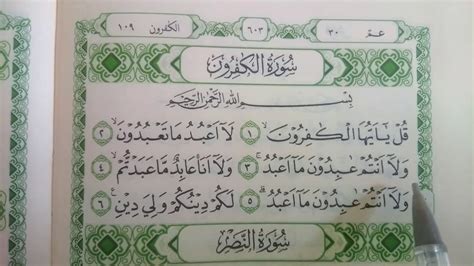 عمّ ٣٠
٦٠٣
الكفرون ١٠٩
سُوْرَةُ الْكٰفِرُوْنَ
بِسْمِ اللّٰهِ الرَّحْمٰنِ الرَّحِيْمِ
قُلْ يٰٓاَيُّهَا الْكٰفِرُوْنَۙ ١ لَآ اَعْبُدُ مَا تَعْبُدُوْنَۙ ٢
وَلَآ اَنْتُمْ عٰبِدُوْنَ مَآ اَعْبُدُۚ ٣ وَلَآ اَنَا۠ عَابِدٌ مَّا عَبَدْتُّمْۙ ٤
وَلَآ اَنْتُمْ عٰبِدُوْنَ مَآ اَعْبُدُۗ ٥ لَكُمْ دِيْنُكُمْ وَلِيَ دِيْنِ ࣖ ٦
سُوْرَةُ النَّصْرِ